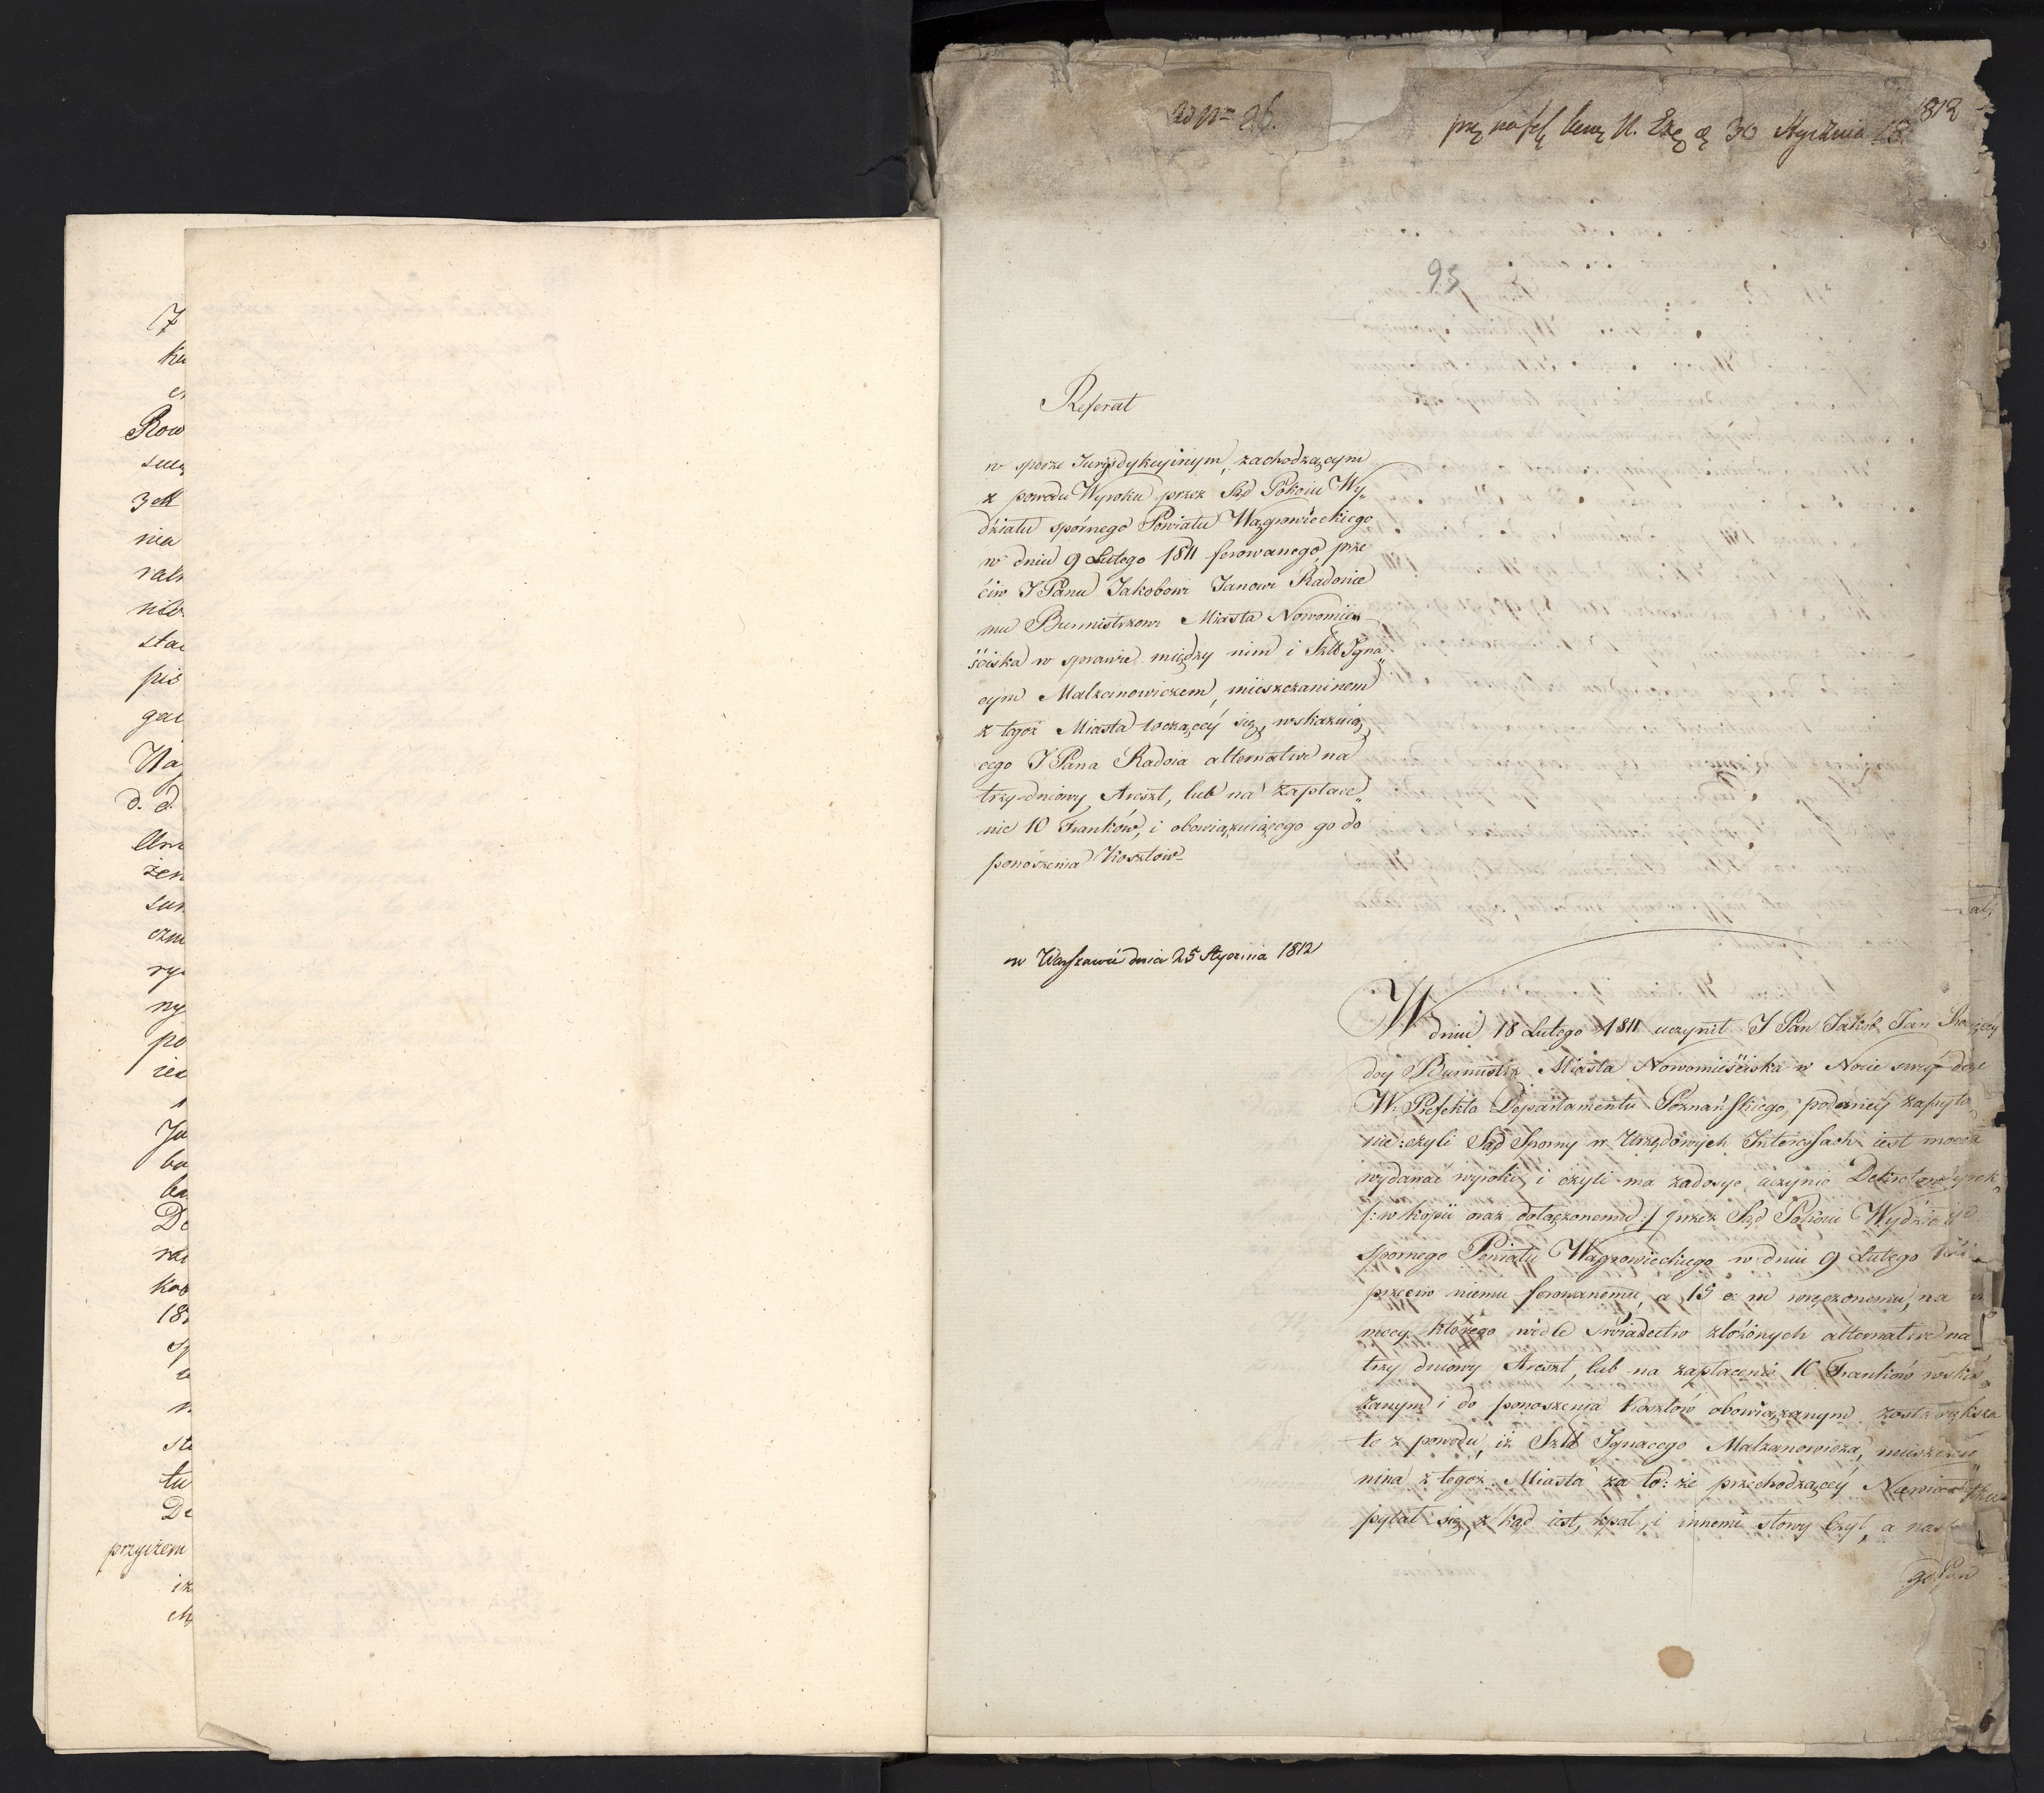 7
ku
Row
3 ck
nia
pis
Wa
d. d.
żen
ny
po
Ju
De
kas
181
tu
De
przyczem
iż
ad N° 26.
30 Stycznia 1812
95
Referat
w sporze Jurysdykcyinym, zachodzącym
z powodu Wyroku przez Sąd Pokoiu Wy„
działu spornego Powiatu Wągrowieckiego
w dniu 9 Lutego 1811 ferowanego, prze
ciw J Panu Jakobowi Janowi Radonie
mu Burmistrzowi Miasta Nowomiey
ściska w sprawie między nim i Szll Igna„
cym Malzanowiczem, mieszczaninem
z tegoż Miasta toczącéy się, wskazuią„
cego J Pana Radoia alternative na
trzydniowy Areszt, lub na zapłace„
nie 10 Franków, i obowiązuiącego go do
ponoszenia Kosztow
w Warszawie dnia 25 Stycznia 1812
W dniu 18 Lutego 1811 uczynił J Pan Jakób Jan
doy Burmistrz Miasta Nowomieściska w Nocie swéy do
W. Prefekta Departamentu Poznańskiego, podanéy zapyta„
nie: czyli Sąd Sporny w Urzędowych Interessach iest mocen
wydawać wyroki, i czyli ma zadosyć uczynić Dekretowi
/: w kopii oraz dołączonemu :/ przez Sąd Pokoiu Wydziału
spornego Powiatu Wągrowieckiego w dniu 9 Lutego
przeciw niemu ferowanemu, a 15 e: m wręczonemu, na
mocy którego wedle świadectw złożonych alternative na
trzy dniowy Areszt, lub na zapłacenie 10 Franków wska„
zanym i do ponoszenia Kosztów obowiązanym został
to z powodu, iż Szll Ignacego Malzanowicza, mieszcza„
nina z tegoż Miasta za to: że przechodzącéy
pytał się, z kąd iest, łpał, i innemi słowy lżył, a
go Pan